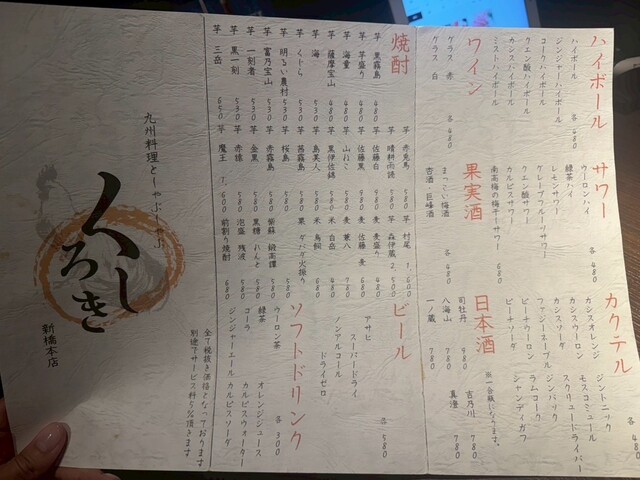 ハイボール
ハイボール
ジンジャーハイボール
コークハイボール
クエン酸ハイボール
カシスハイボール
ミストハイボール
各480
サワー
ウーロンハイ
緑茶ハイ
レモンサワー
グレープフルーツサワー
クエン酸サワー
カルピスサワー
各480
南高梅の梅干サワー 680
カクテル
カシスオレンジ
カシスウーロン
カシスソーダ
ファジーネーブル
ピーチウーロン
ピーチソーダ
ジントニック
モスコミュール
スクリュードライバー
ジンバック
ラムコーク
シャンディガフ
各480
ワイン
グラス 赤
グラス 白
各480
果実酒
まっこい梅酒
杏酒・巨峰酒
各480
日本酒
※一合瓶になります。
司牡丹 980
八海山 780
一ノ蔵 780
吉乃川 780
真澄 780
焼酎
芋 黒霧島 480
芋 芋盛り 480
芋 海童 480
芋 薩摩宝山 480
芋 海 530
芋 くじら 530
芋 明るい農村 530
芋 富乃宝山 530
芋 一刻者 530
芋 黒一刻 530
芋 三岳 650
芋 赤兎馬 580
芋 晴耕雨読 580
芋 佐藤白 580
芋 佐藤黒 580
芋 山ねこ 580
芋 黒伊佐錦
芋 島美人
芋 茜霧島 580
芋 桜島 580
芋 赤霧島 580
芋 金黒 580
芋 赤猿 580
芋 魔王 1,600
芋 村尾 1,600
芋 森伊蔵 2,500
麦 麦盛り 480
麦 佐藤 麦 680
麦 兼八 780
米 白岳 480
米 鳥飼 680
栗 ダバダ火振り 580
紫蘇 鍛高譚 580
黒糖 れんと 580
泡盛 残波 580
前割り焼酎 680
ビール
アサヒ
スーパードライ
ノンアルコール
ドライゼロ
各580
ソフトドリンク
ウーロン茶
緑茶
コーラ
ジンジャーエール
オレンジジュース
カルピスウォーター
カルピスソーダ
各300
全て税抜き価格となっております
別途でサービス料5%頂きます
九州料理としゃぶしゃぶ
くしろき
新橋本店